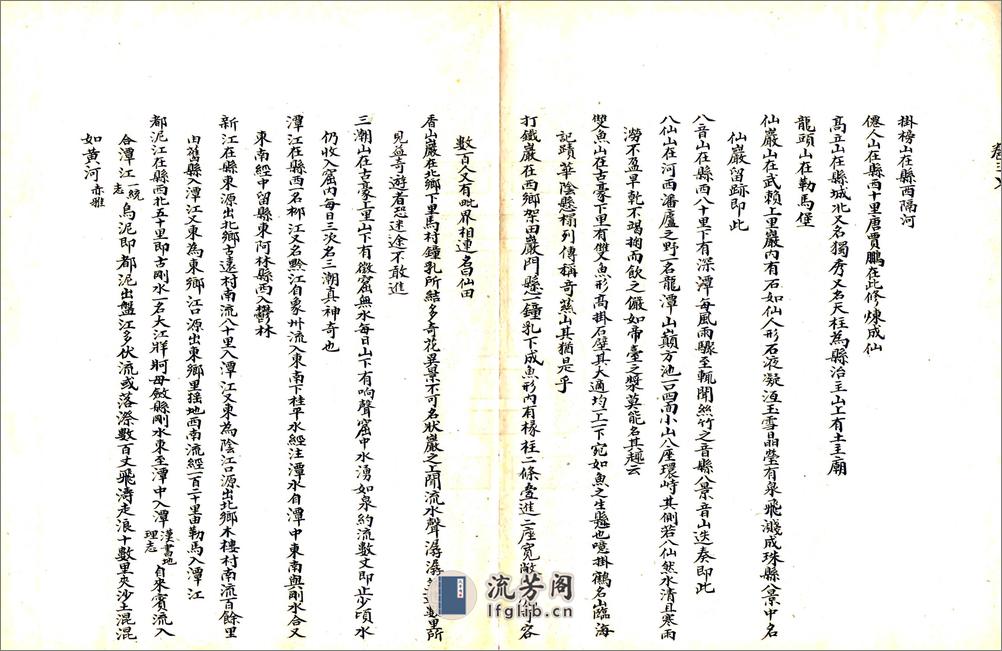 掛榜山在縣西隔河
僊人山在縣西十里唐賈鵬在此修煉成仙
高立山在縣城北又名獨秀又名天柱為縣治主山上有土主廟
龍頭山在勒馬堡
仙巖山在武賴上里巖內有石如仙人形石液凝沍玉雪晶瑩有泉飛濺成珠縣八景中名
仙巖留跡即此
八音山在縣西八十里下有深潭每風雨驟至輒聞絲竹之音縣八景音山迭奏即此
八仙山在河西潘廬之野一名龍潭山巔方池一口四面小山八座環峙其側若八仙然水清且寒雨
澇不盈旱乾不竭掬而飲之儼如帝臺之漿莫能名其趣云
雙魚山在古豪下里有雙魚形高掛石壁其大適均一上一下宛如魚之生懸也噫掛鶴名山臨海
記蹟華陰懸榻列傳稱奇茲山其猶是乎
打鐵巖在西鄉架田巖門縣一鐘乳下成魚形內有椽柱二條壹進二座寬敞可容
數百人又有毗界相連名曰仙田
看山巖在北鄉下里馬村鐘乳所結多奇花異景不可名狀巖之上聞流水聲潺潺進里所
見益奇遊者恐迷途不敢進
三潮山在古豪上里山下有微窟無水每日山下有响聲窟中水湧如泉約流數丈即止少頃水
仍收入窟內每日三次名三潮真神奇也
潭江在縣西一名郴江又名黔江自象州流入東南下桂平水經注潭水自潭中東南與剛水合又
東南經中留縣東阿林縣西入鬱林
新江在縣東源出北鄉古遠村南流八十里入潭江又東為陰江口源出北鄉木樓村南流百餘里
由舊縣入潭江又東為東鄉江口源出東鄉里猺地西南流經一百二十里由勒馬入潭江
都泥江在縣西北五十里即古剛水一名大江牂牁毋斂縣剛水東至潭中入潭漢書地理志自來賓流入
合潭江一統志烏泥即都泥出盤江多伏流或落漈數百丈飛濤走浪十數里夾沙土混混
如黃河赤雅
流芳阁
lfglib.cn